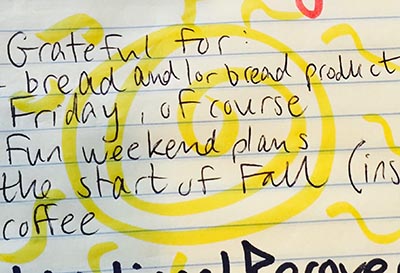 Grateful for:
- bread and/or bread product
Friday, of course
Fun weekend plans
the start of Fall (ins
coffee